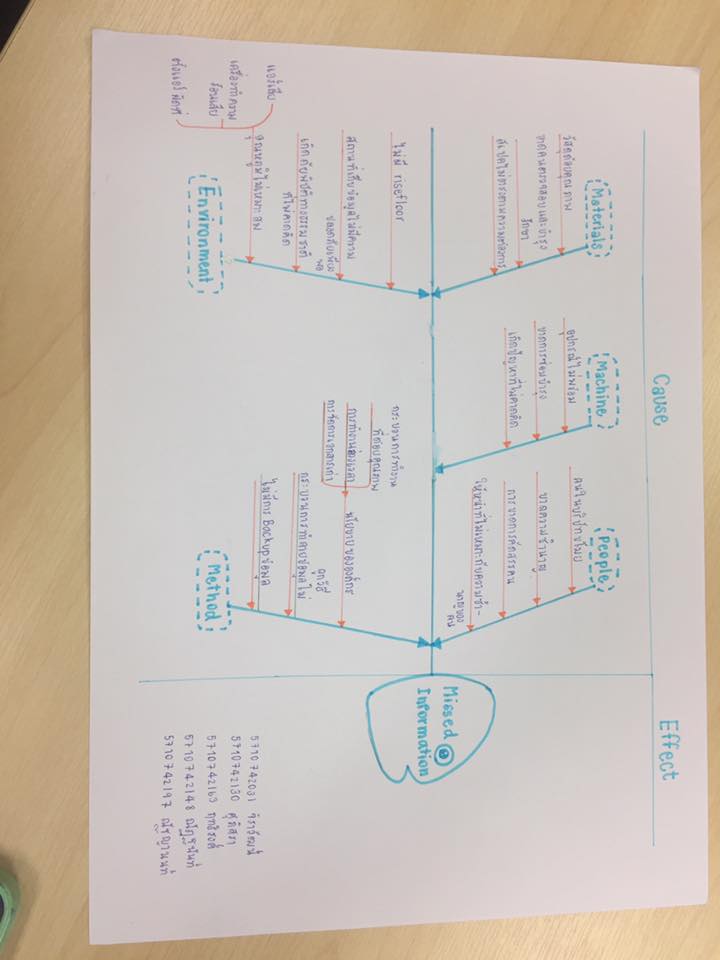 Cause
Effect
Materials
วัสดุด้อยคุณภาพ
ขาดคนตรวจสอบและบำรุง
รักษา
สเปคไม่ตรงตามความต้องการ
Machine
อุปกรณ์ไม่พร้อม
ขาดการซ่อมบำรุง
เกิดปัญหาที่ไม่คาดคิด
People
คนในบริษัทขโมย
ขาดความชำนาญ
การขาดการคัดสรรคน
ให้หน้าที่ไม่เหมาะกับความชำ-
นาญของ
คน
Missed
Information
ไม่มี risefloor
สถานที่เก็บข้อมูลไม่มีความ
ปลอดภัยเพียง
พอ
เกิดภัยพิบัติทางธรรมชาติ
ที่ไม่คาดคิด
อุณหภูมิไม่เหมาะสม
แอร์เสีย
เครื่องทำความ
ร้อนเสีย
ตั้งแอร์ผิดที่
Environment
กระบวนการทำงาน
ที่ด้อยคุณภาพ
การทำงานล่วงเวลา
การจัดการเอกสารเก่า
นโยบายขององค์กร
ถูกวิธี
กระบวนการทำลายข้อมูลไม่
ไม่มีการ Backup ข้อมูล
Method
5710742031 จิราวัฒน์
5710742130 ศุภิสรา
5710742163 ฤทธิรงค์
5710742148 ณัฏฐนันท์
5710742197 ณัชญานนท์